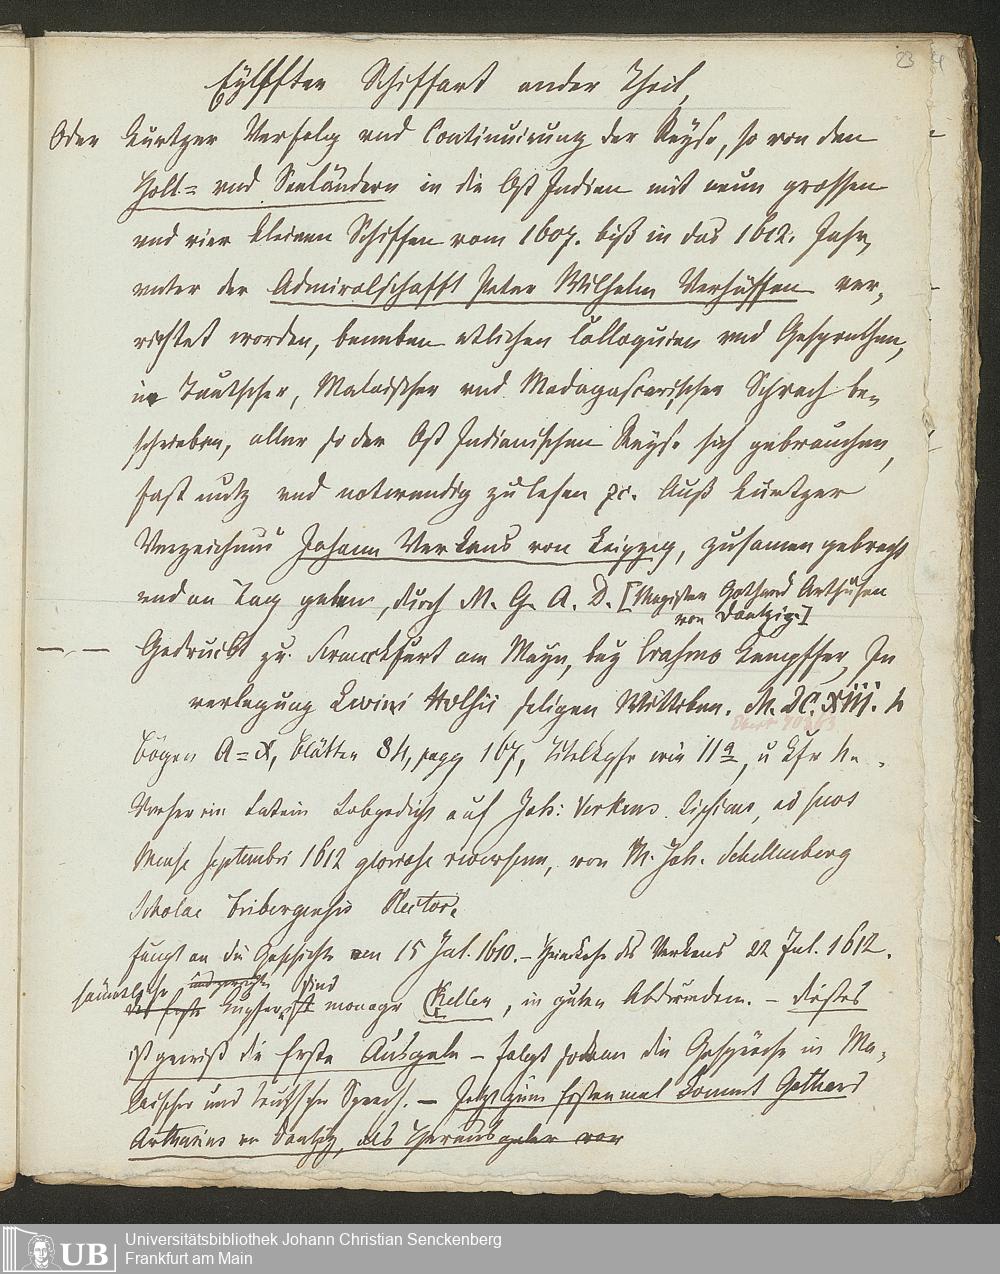 23
Eylffter Schiffart ander Theil
Oder kurtzer Verfolg vnd Continuirung der Reyse, so von den
Holl= vnd Seeländern in die Ost Indien mit neun grossen
vnd vier kleinen Schiffen vom 1607. biß in das 1612. Jahr,
vnter der Admiralschafft Peter Wilhelm Verhüffen ver=
richtet worden, beneben etlichen Colloquien vnd Gesprechen,
in Teutscher, Malaischer vnd Madagascarischer Sprach be=
schrieben, allen so der Ost Indianischen Reyse sich gebrauchen,
fast nutz vnd notwendig zu lesen pc. Auß kurtzer
Verzeichnus Johann Verkens von Leipzig, zusamen gebracht
vnd an Tag geben, durch M. G. A. D. [Magister Gothard Arthusen
von Dantzig.]
Gedruckt zu Franckfurt am Mayn, bey Erasmo Kempffer, In
verlegung Levini Hulsii seligen Wittiben. M. DC. XIII. 4
Ebert
Bögen A=X, Blätter 84, pagg 167, Titelkpfr wie 11a, u Kfr
Vorher ein latein Lobgedicht auf Joh: Verkens Lipsiens, ad suos
Mense Septembri 1612 gloriose reversum, von M. Joh. Schellenberg
Scholae Fribergensis Rector.
fängt an die Geschichte am 15 Jul. 1610. – Heimkehr des Verkens 22 Jul. 1612.
sämtliche sind
Kupfer monogr Keller, in guten Abdrücken. – dieses
ist gewiß die Erste Ausgabe – folgt sodann die Gespräche in Ma=
laischer und Teutscher Sprach. – Jetzt zum Erstenmal kommt Gothard
Arthusius v. Dantzig, als Herausgeber vor
Universitätsbibliothek Johann Christian Senckenberg
UB Frankfurt am Main